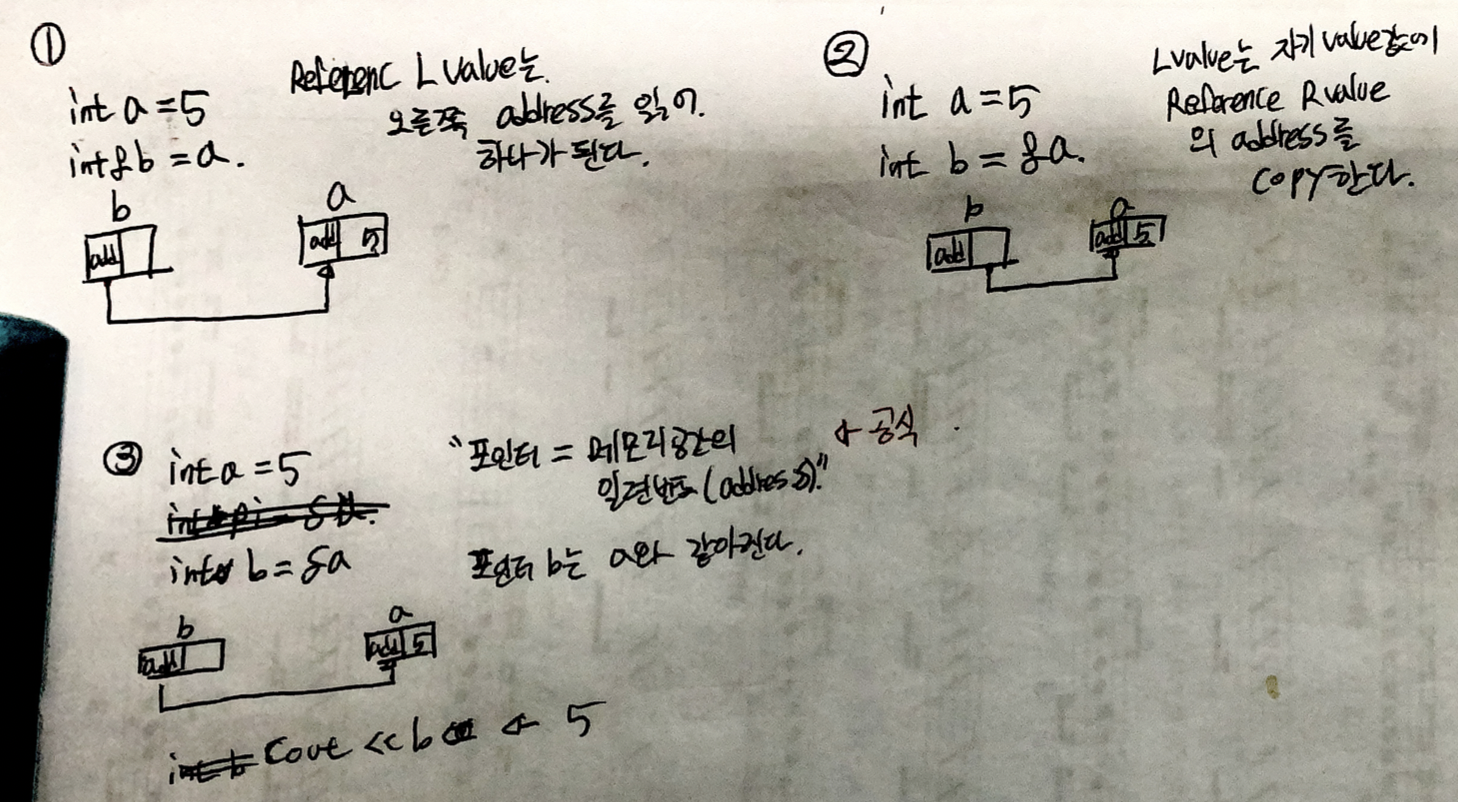 ①
int a = 5
int& b = a.
Referenc L value는
오른쪽 address를 읽어.
하나가 된다.
b a
add add 5
②
int a = 5
int b = &a.
Lvalue는 자기 value값에
Reference Rvalue
의 address를
copy한다.
b a
add add 5
③
int a = 5
b = &a
"포인터 = 메모리공간의
일련번호(address)."
← 공식.
포인터 b는 a와 같아진다.
b a
add add 5
Cout << b ← 5